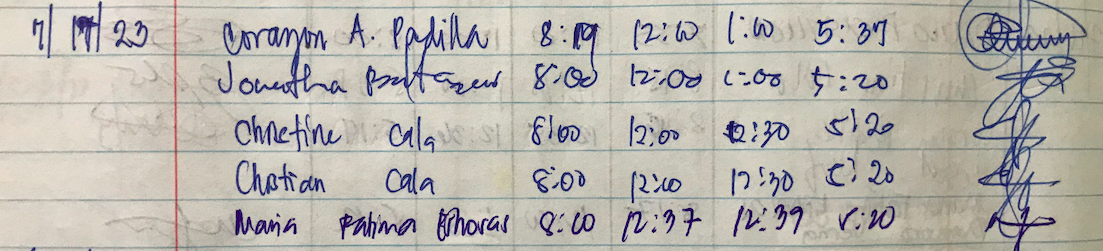 7/17/23 Corazon A. Padilla 8:19 12:00 1:00 5:37
Jonetha 8:00 12:00 1:00 5:20
Christine Cala 8:00 12:00 12:30 5:20
Christian Cala 8:00 12:00 12:30 5:20
Maria Fatima 8:00 12:37 12:39 5:20